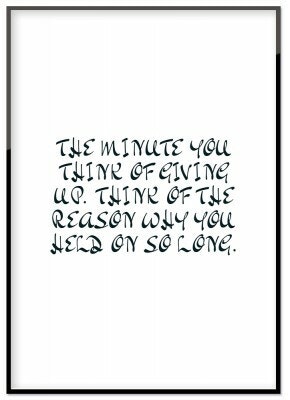 THE MINUTE YOU
THINK OF GIVING
UP. THINK OF THE
REASON WHY YOU
HELD ON SO LONG.